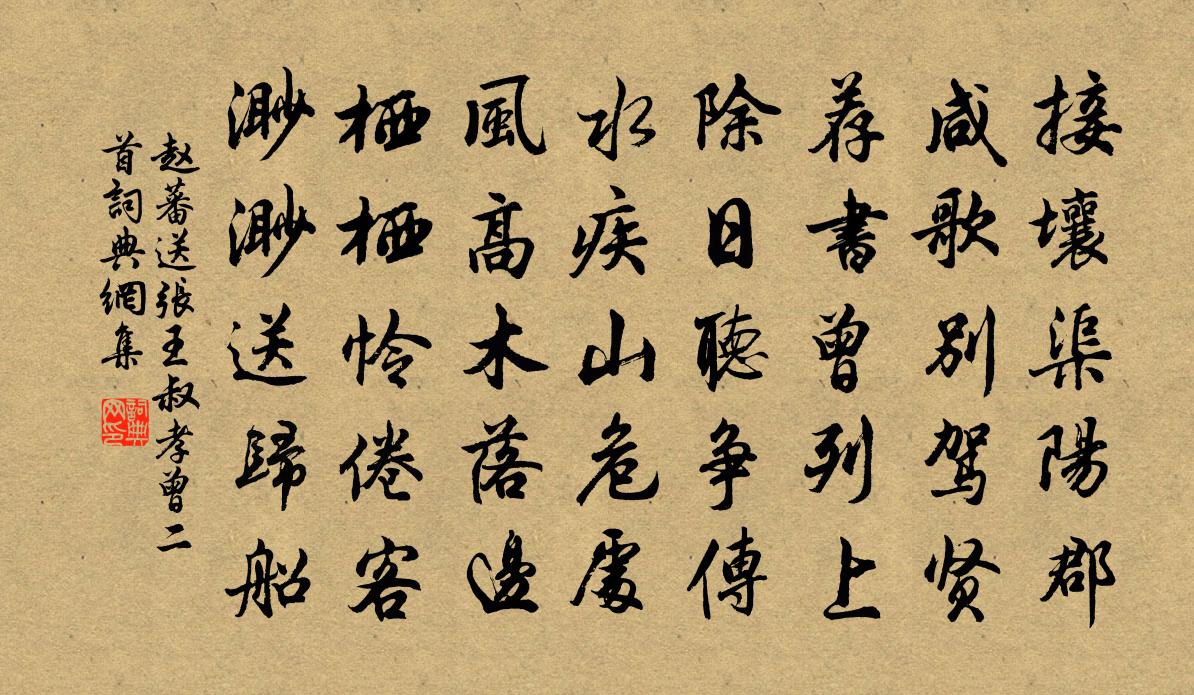 接壤渠陽郡
咸歌別駕贤
荐書曾列上
除日聽争傳
水疾山危處
風高木落邊
栖栖怜倦客
渺渺送歸船
赵蕃送張王叔孝曾二
首詞典網集
詞典
网印